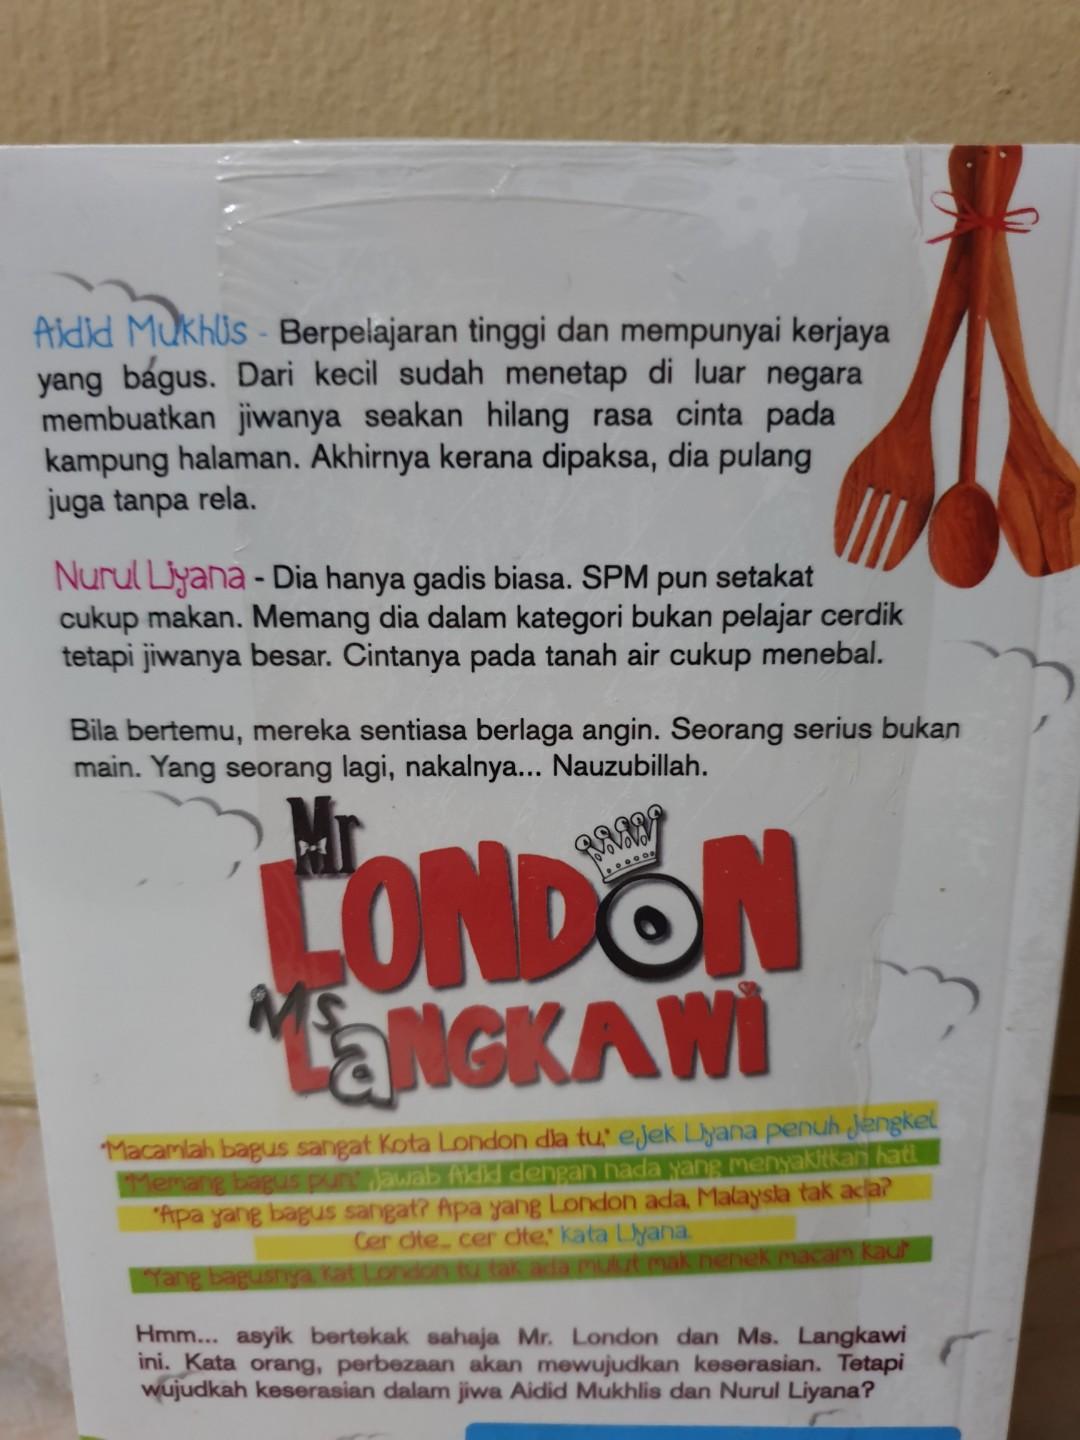 Aidid Mukhlis - Berpelajaran tinggi dan mempunyai kerjaya
yang bagus. Dari kecil sudah menetap di luar negara
membuatkan jiwanya seakan hilang rasa cinta pada
kampung halaman. Akhirnya kerana dipaksa, dia pulang
juga tanpa rela.
Nurul Liyana - Dia hanya gadis biasa. SPM pun setakat
cukup makan. Memang dia dalam kategori bukan pelajar cerdik
tetapi jiwanya besar. Cintanya pada tanah air cukup menebal.
Bila bertemu, mereka sentiasa berlaga angin. Seorang serius bukan
main. Yang seorang lagi, nakalnya... Nauzubillah.
Mr
LONDON
Ms
LaNGKAWi
"Macamlah bagus sangat Kota London dia tu," ejek Liyana penuh jengkel.
"Memang bagus pun," jawab Aidid dengan nada yang menyakitkan hati.
"Apa yang bagus sangat? Apa yang London ada, Malaysia tak ada?
Cer cite... cer cite," kata Liyana.
"Yang bagusnya, kat London tu tak ada mulut mak nenek macam kau!"
Hmm... asyik bertekak sahaja Mr. London dan Ms. Langkawi
ini. Kata orang, perbezaan akan mewujudkan keserasian. Tetapi
wujudkah keserasian dalam jiwa Aidid Mukhlis dan Nurul Liyana?